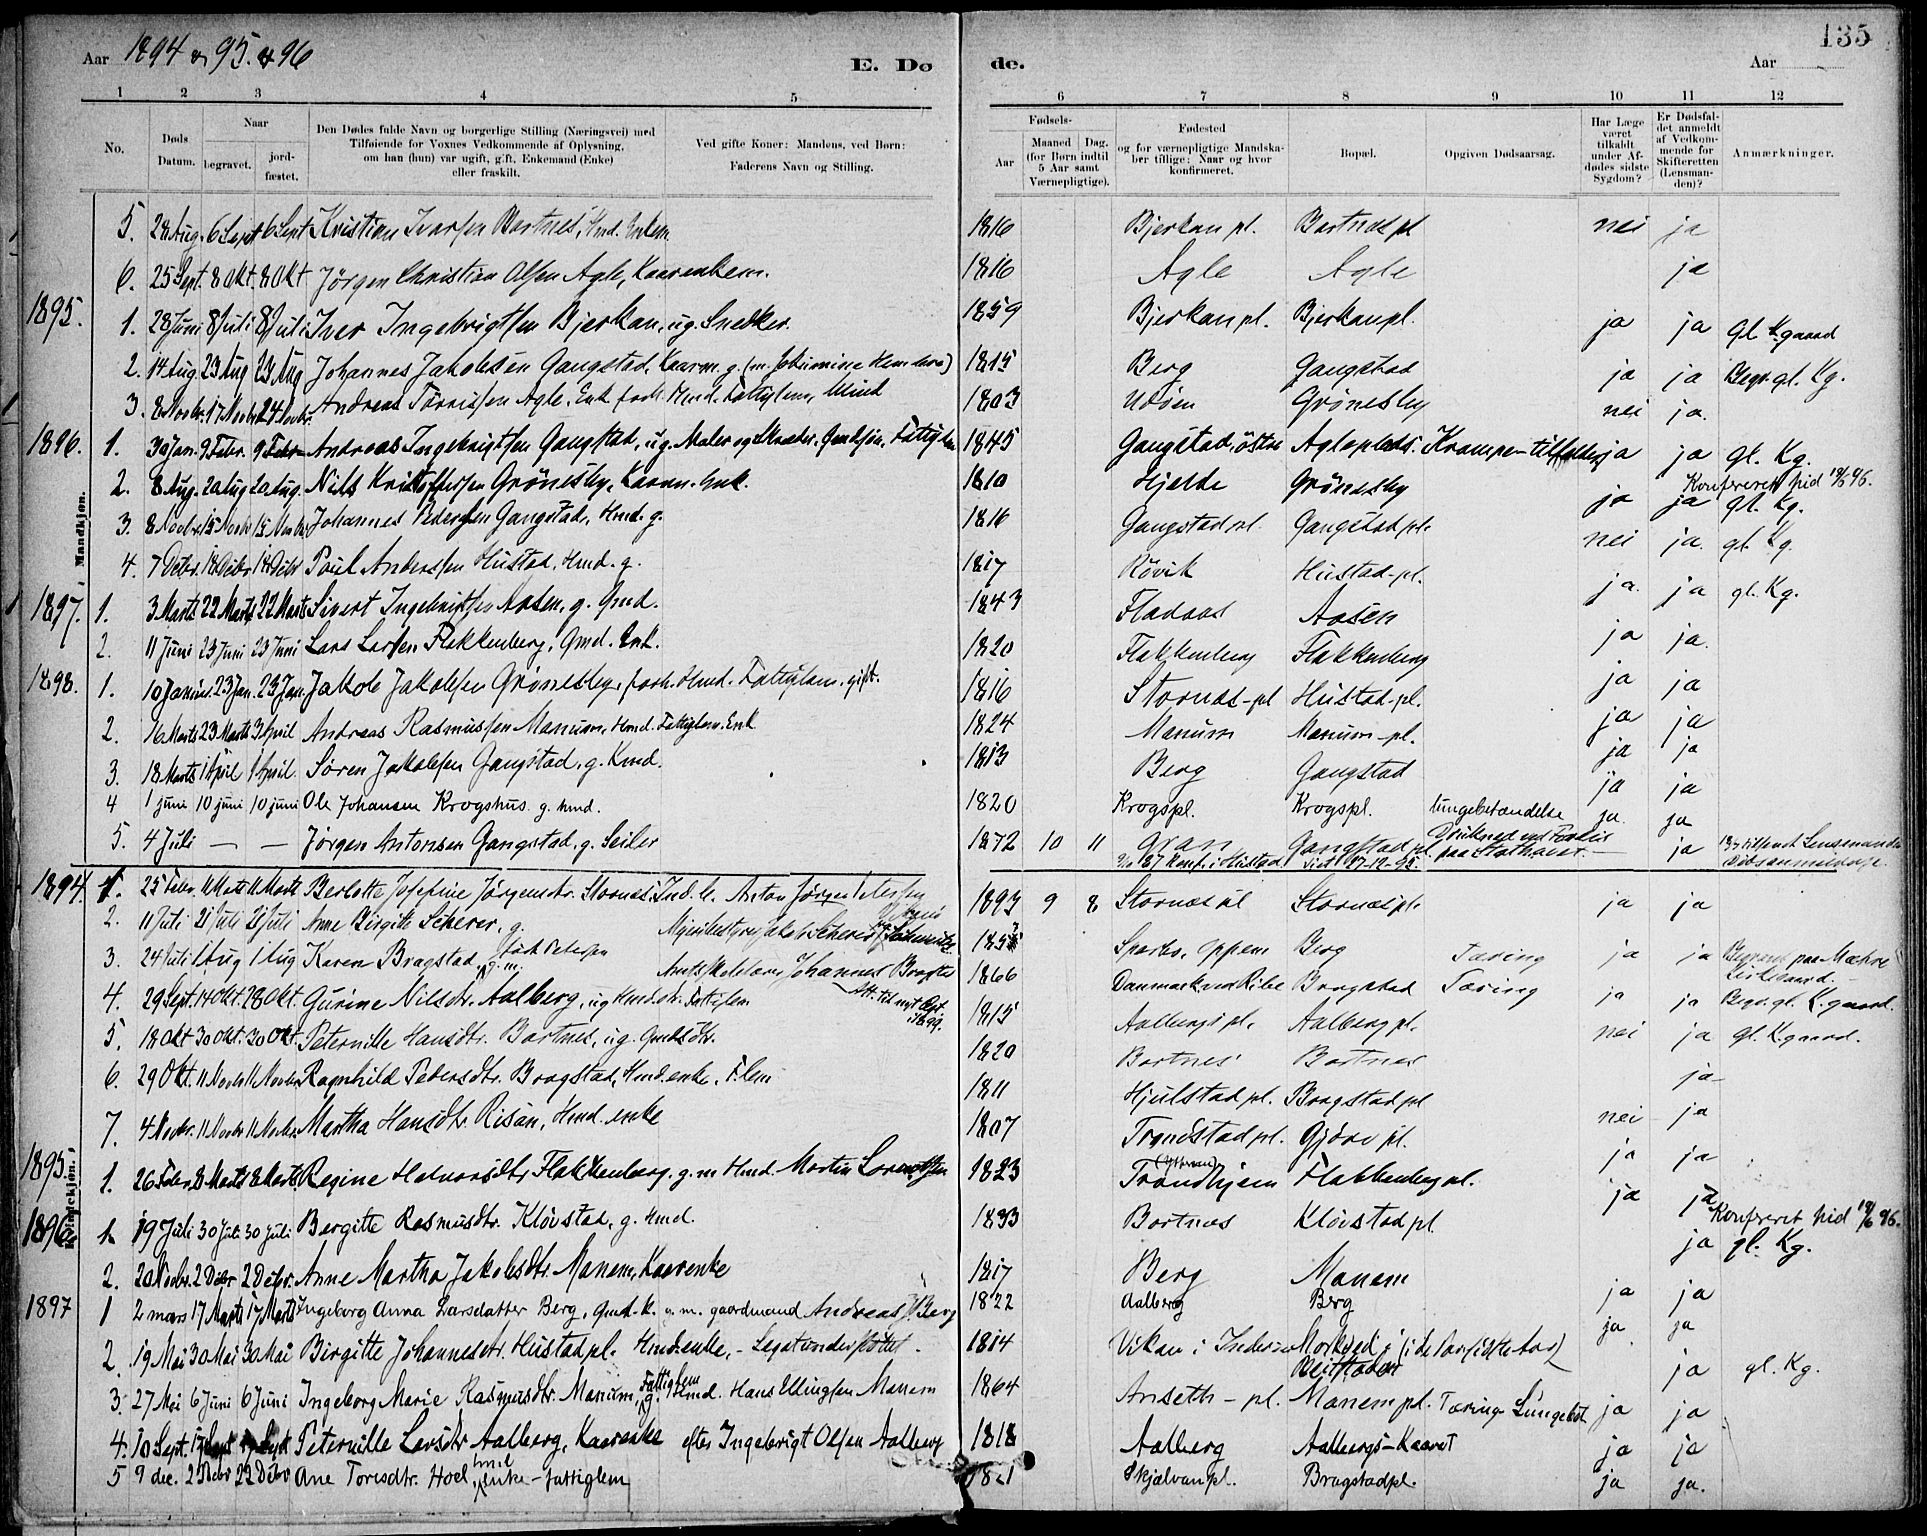 Aar 1894 & 95. & 96 E. Dø de. Aar 135
1 2 3 4 5 6 7 8 9 10 11 12
No. Døds Datum. Naar begravet. jordfæstet. Den Dødes fulde Navn og borgerlige Stilling (Næringsvei) med Tilføiende for Voxnes Vedkommende af Oplysning, om han (hun) var ugift, gift, Enkemand (Enke) eller fraskilt. Ved gifte Koner: Mandens, ved Børn: Faderens Navn og Stilling. Fødsels- Aar Maaned Dag. (for Børn indtil 5 Aar samt Værnepligtige). Fødested og for værnepligtige Mandskaber tillige: Naar og hvor konfirmeret. Bopæl. Opgiven Dødsaarsag. Har Læge været tilkaldt under Afdødes sidste Sygdom? Er Dødsfaldet anmeldt af Vedkommende for Skifteretten (Lensmanden)? Anmærkninger.
Mandkjøn.
5. 28 Aug. 6 Sept 6 Sept Kristian Ivarsen Bartnes, Hmd. Enkem. 1816 Bjerkan pl. Bartnes pl nei ja
6. 25 Sept. 8 Okt. 8 Okt Jörgen Christian Olsen Agle, Kaarenkem. 1816 Agle Agle ja
1895. 1. 28 Juni 8 Juli 8 Juli Iver Ingebrigtsen Bjerkan, ug. Snedker. 1859 Bjerkanpl. Bjerkanpl. ja ja Gl. Kgaard
2. 14 Aug. 23 Aug 23 Aug Johannes Jakobsen Gangstad, Kaarm. g. 1815 Berg Gangstad ja ja Begr. gl. Kg.
3. 8 Novbr. 17 Novbr 24 Novbr. Andreas Agle, Enk. forh. Hmd. Fattiglem, blind 1803 Grönesby nei ja.
1896. 1. 30 Jan. 9 Febr. 9 Febr Andreas Ingebrigtsen Gangstad, ug. Maler og Fattiglem 1845 Gangstad, östre Agleplads. Krampe-tilfælde ja ja gl. Kg.
2. 8 Aug. 20 Aug 20 Aug. Nils Kristoffersen Grönesby, Kaarm. Enk. 1810 Hjelde Grönesby ja ja Konfereret hid 18/6 96. gl. Kg.
3. 8 Novbr 15 Novbr 15 Novbr Johannes Pedersen Gangstad, Hmd. g. 1816 Gangstad pl. Gangstad pl. nei ja. gl. Kg.
4. 7 Decbr. 18 Decbr 18 Decbr Paul Anderssen Hustad, Hmd. g. 1817 Rövik Hustad-pl. ja. ja gl. Kg.
1897. 1. 3 Marts 22 Marts 22 Marts Sivert Ingebrigtsen Aasen, g. Gmd. 1843 Fladaas Aasen ja ja.
2. 11 Juni 23 Juni 23 Juni Lars Larsen Flekkenberg, Gmd. Enk. 1820 Flakkenberg Flakkenberg ja ja
1898. 1. 10 Januar. 23 Jan. 23 Jan. Jakob Jakobsen Grönesby, forh. Hmd. Fattiglem. gift. 1816 Stornes-pl Hustad-pl. ja ja
2. 16 Marts 23 Marts 3 April Andreas Rasmussen Manum, Hmd. Fattiglem. Enk 1824 Manum Manum-pl. ja ja
3. 18 Marts 1 April 1 April. Sören Jakobsen Gangstad, g. Kmd. 1813 Berg Gangstad ja ja
4 1 juni 10 juni 10 juni Ole Johansen Krogshus. g. hmd. 1820 Krogspl. Krogspl. lungebetændelse ja. ja
5. 4 Juli — — Jörgen Antonsen Gangstad, g. Seiler 1872 10 11 Gran 87 konf. i Hustad Gangstad pl vidt 17-12-95. Druknet ved Forlis paa Stathavet. ja
Kvindekjøn.
1894. 1. 25 Febr. 11 Marts 11 Marts Berlotte Josefine Jörgensdtr. Stornes. Ind. S. Anton Jörgen Petersen 1893 9 8 Stornes pl Stornes pl. ja ja
2. 11 Juli 21 Juli 21 Juli Anne Birgitte Scherer, g. Sparbo, Berg Tæring ja ja Begravet paa Mæhre Kirkegaard.
3. 24 Juli 1 Aug 1 Aug Karen Bragstad, g. m. født Petersen Johannes Bragstad Att. 1899. 1866 Danmark ved Ribe Bragstad Tæring ja ja Begr. gl. K.gaard.
4. 29 Sept. 14 Okt. 28 Okt. Gurine Nilsdtr. Aalberg, ug Hmd.dtr. Fattiglem 1815 Aalbergs pl. Aalberg pl. nei ja gl. K.gaard.
5. 18 Okt 30 Okt. 30 Okt. Peternille Hansdtr. Bartnes, ug. Gmds Dtr. 1820 Bartnes Bartnes ja
6. 29 Okt. 11 Novbr 11 Novbr Ragnhild Pedersdtr. Bragstad, Hmd.enke. F.lem 1811 Hjulstad pl. Bragstad pl nei ja
7. 4 Novbr. 11 Novbr 11 Novbr. Martha Hansdtr. Risan, Hmd. enke 1807 Trondstad pl. Gjöre pl. ja ja
1895. 1. 26 Febr. 8 Marts 8 Marts. Regine Halvorsdtr. Flakkenberg. g. m Hmd. Martin Lorentsen 1823 Trondhjem Flakkenberg pl. ja ja
1896. 1. 19 Juli 30 Juli 30 Juli Bergitte Rasmusdtr. Klövstad, g. Hmd. 1833 Bartnes Klövstad pl. ja Konfereret hid 18/6 96. gl. Kg.
2. 20 Novbr. 2 Decbr 2 Decbr. Anne Martha Jakobsdtr. Manem, Kaarenke 1817 Berg Manem ja ja
1897 1 2 mars 17 Marts 17 Marts Ingeborg Anna Larsdatter Berg, Gmd.-k. g. m. gaardmand Andreas J. Berg 1822 Aalberg Berg ja ja
2. 19 Mai 30 Mai 30 Mai Birgitte Johannesdtr. Hustad pl. Hmd.enke, - Legatunderstöttet. 1814 Vikan i Inderöen Beitstaden ja gl. Kg.
3. 27 Mai 6 Juni 6 Juni Ingeborg Marie Rasmusdtr. Manum, Fattiglem g. Hmd. Hans Ellingsen Manem 1864 Anseth-pl. Manem pl. Tæring Lungebet. ja ja
4. 10 Sept. 17 Sept 17 Sept Peternille Larsdtr. Aalberg, Kaarenke efter Ingebrigt Olsen Aalberg 1818 Aalberg Aalbergs-Kaaret ja ja
5 9 dec. 22 Decbr 22 Decbr Ane Torisdtr. Hoel, hmd enke-fattiglem 1821 Skjælvan pl. Bragstadpl. ja ja.